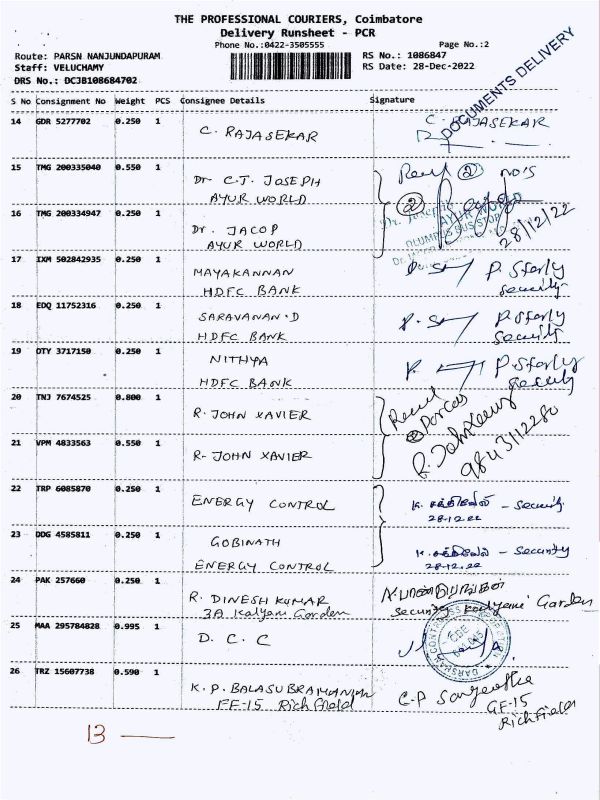 THE PROFESSIONAL COURIERS, Coimbatore
Delivery Runsheet - PCR
Phone No.:0422-3505555
Page No.:2
Route: PARSN NANJUNDAPURAM
RS No.: 1086847
Staff: VELUCHAMY
RS Date: 28-Dec-2022
DRS No.: DCJB108684702
DOCUMENTS DELIVERY
S No Consignment No Weight PCS Consignee Details Signature
14 GDR 5277702 0.250 1 C. RAJASEKAR
C. RAJASEKAR
15 TMG 200335040 0.550 1 Dr. C.J. JOSEPH
AYUR WORLD
2 NO'S
16 TMG 200334947 0.250 1 Dr. JACOP
AYUR WORLD
2
AYUR WORLD
BUS STOP
28/12/22
17 IXM 502842935 0.250 1 MAYAKANNAN
HDFC BANK
Security
18 EDQ 11752316 0.250 1 SARAVANAN.D
HDFC BANK
Security
19 OTY 3717150 0.250 1 NITHYA
HDFC BANK
Security
20 TNJ 7674525 0.800 1 R. JOHN XAVIER
21 VPM 4833563 0.550 1 R- JOHN XAVIER
9843112280
22 TRP 6085870 0.250 1 ENERGY CONTROL
- Security
28.12.22
23 DDG 4585811 0.250 1 GOBINATH
ENERGY CONTROL
- Security
28.12.22
24 PAK 257660 0.250 1 R. DINESH KUMAR
3A Kalyani Garden
Security Kalyani Garden
25 MAA 295784828 0.995 1 D. C. C
26 TRZ 15607738 0.590 1 K.P. BALASUBRAMANIAN
FF-15 Rich Field
C.P Sangeetha
GF-15
Rich Field
13